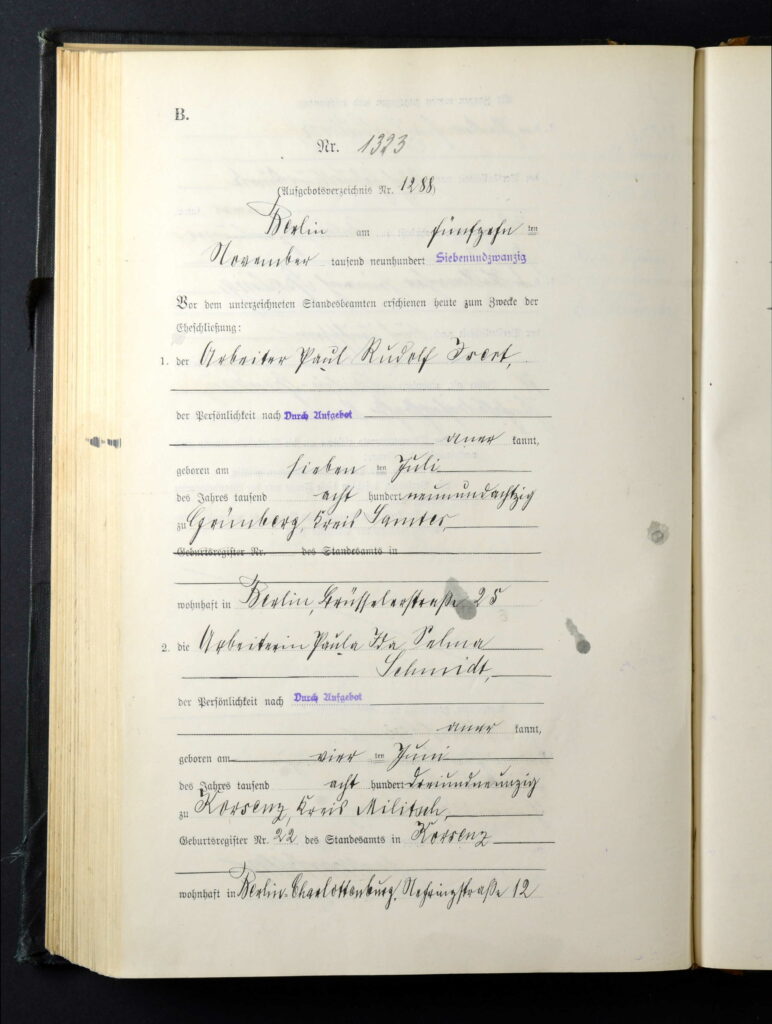 B.
Nr. 1323
(Aufgebotsverzeichnis Nr. 1288)
Berlin am fünfzehn ten
November tausend neunhundert Siebenundzwanzig
Vor dem unterzeichneten Standesbeamten erschienen heute zum Zwecke der
Eheschließung:
1. der Arbeiter Paul Rudolf
der Persönlichkeit nach Durch Aufgebot
aner kannt,
geboren am sieben ten Juli
des Jahres tausend acht hundert neunundachtzig
zu Grünberg, Kreis Samter
Geburtsregister Nr. des Standesamts in
wohnhaft in Berlin, Brüsselerstraße 25
2. die Arbeiterin Paula Ida Selma
Schmidt,
der Persönlichkeit nach Durch Aufgebot
aner kannt,
geboren am vier ten Juni
des Jahres tausend acht hundert dreiundneunzig
zu Korsenz, Kreis Militsch
Geburtsregister Nr. 22 des Standesamts in Korsenz
wohnhaft in Berlin-Charlottenburg, Nehringstraße 12